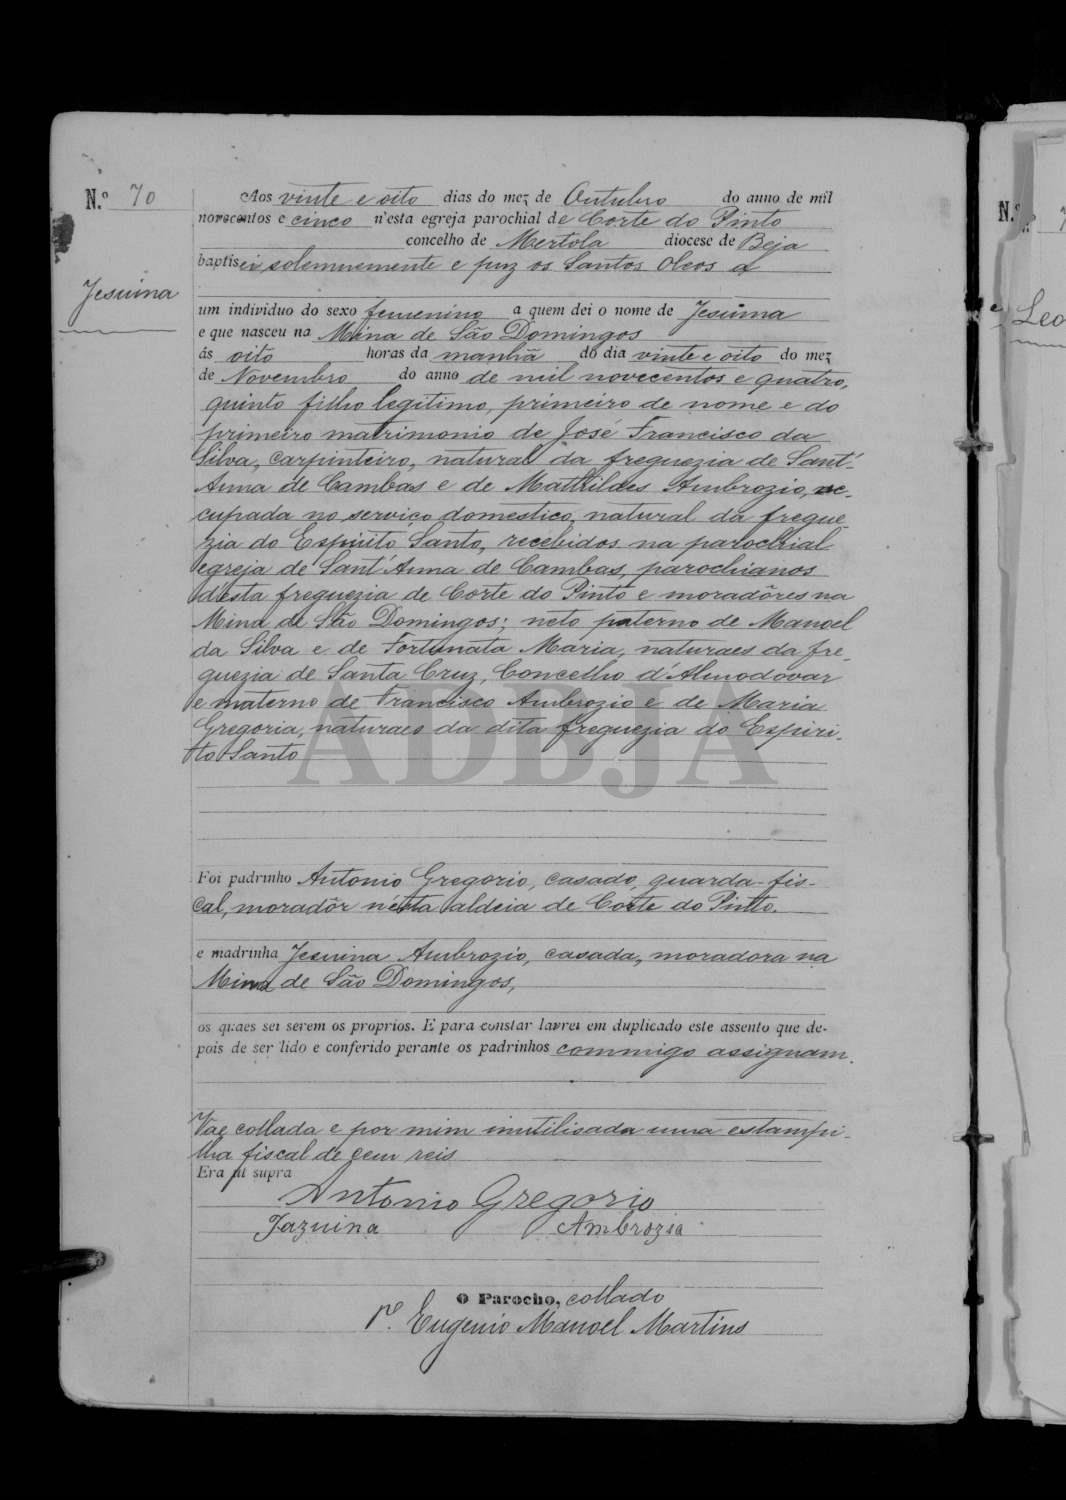 N.º 70
Jesuina
Aos vinte e oito dias do mez de Outubro do anno de mil
novecentos e cinco n'esta egreja parochial de Corte do Pinto
concelho de Mertola diocese de Beja
baptisei solemnemente e puz os Santos Oleos a
um individuo do sexo femenino a quem dei o nome de Jesuina
e que nasceu na Mina de São Domingos
ás oito horas da manhã do dia vinte e oito do mez
de Novembro do anno de mil novecentos e quatro,
quinto filho legitimo, primeiro de nome e do
primeiro matrimonio de José Francisco da
Silva, carpinteiro, natural da freguezia de Sant'
Anna de Cambas e de Mathildes Ambrozio, oc-
cupada no serviço domestico, natural da fregue-
zia do Espirito Santo, recebidos na parochial
egreja de Sant'Anna de Cambas, parochianos
desta freguezia de Corte do Pinto e moradôres na
Mina de São Domingos; neto paterno de Manoel
da Silva e de Fortunata Maria, naturaes da fre-
guezia de Santa Cruz, Concelho d'Almodovar
e materno de Francisco Ambrozio e de Maria
Gregoria, naturaes da dita freguezia do Espiri-
to Santo
ADBJA
Foi padrinho Antonio Gregorio, casado, guarda-fis-
cal, moradôr nésta aldeia de Corte do Pinto.
e madrinha Jesuina Ambrozio, casada, moradora na
Mina de São Domingos,
os quaes sei serem os proprios. E para constar lavrei em duplicado este assento que de-
pois de ser lido e conferido perante os padrinhos commigo assignam.
Vae collada e por mim inutilisada uma estampi-
lha fiscal de cem reis
Era ut supra
Antonio Gregorio
Jazuina Ambrozia
O Parocho, collado
P.e Eugenio Manoel Martins
N.º 7
Leo